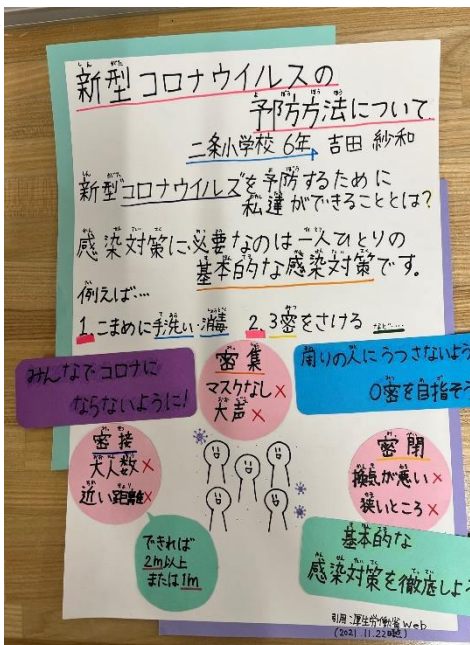 新型コロナウイルスの
予防方法について
二条小学校 6年, 吉田 紗和
新型コロナウイルスを予防するために
私達ができることとは?
感染対策に必要なのは一人ひとりの
基本的な感染対策です。
例えば…
1.こまめに手洗い・消毒 2.3密をさける など…
みんなでコロナに
ならないように!
密集
マスクなし×
大声×
周りの人にうつさないよう
0密を目指そ
密接
大人数×
近い距離×
密閉
換気が悪い×
狭いところ×
できれば
2m以上
または1m
基本的な
感染対策を徹底しよ
引用:厚生労働省Web
(2021.11.22時点)